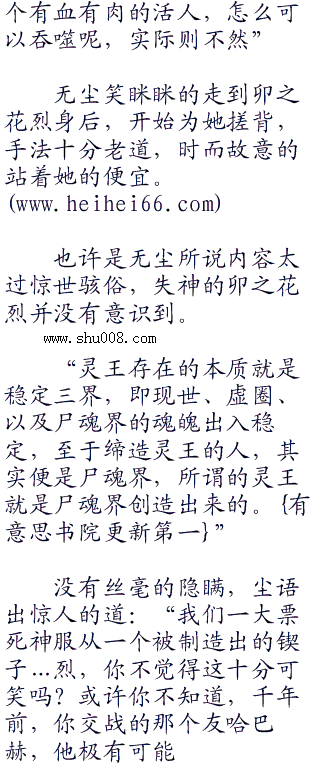 个有血有肉的活人，怎么可
以吞噬呢，实际则不然”
无尘笑眯眯的走到卯之
花烈身后，开始为她搓背，
手法十分老道，时而故意的
站着她的便宜。
(www.heihei66.com)
也许是无尘所说内容太
过惊世骇俗，失神的卯之花
烈并没有意识到。
www.shu008.com
“灵王存在的本质就是
稳定三界，即现世、虚圈、
以及尸魂界的魂魄出入稳
定，至于缔造灵王的人，其
实便是尸魂界，所谓的灵王
就是尸魂界创造出来的。{有
意思书院更新第一}”
没有丝毫的隐瞒，尘语
出惊人的道：“我们一大票
死神服从一个被制造出的锲
子…烈，你不觉得这十分可
笑吗？或许你不知道，千年
前，你交战的那个友哈巴
赫，他极有可能